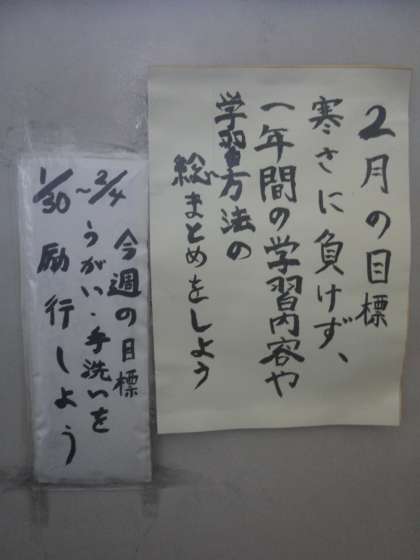 2月の目標
寒さに負けず、
一年間の学習内容や
学習方法の
総まとめをしよう
今週の目標
1/30〜2/4
うがい・手洗いを
励行しよう